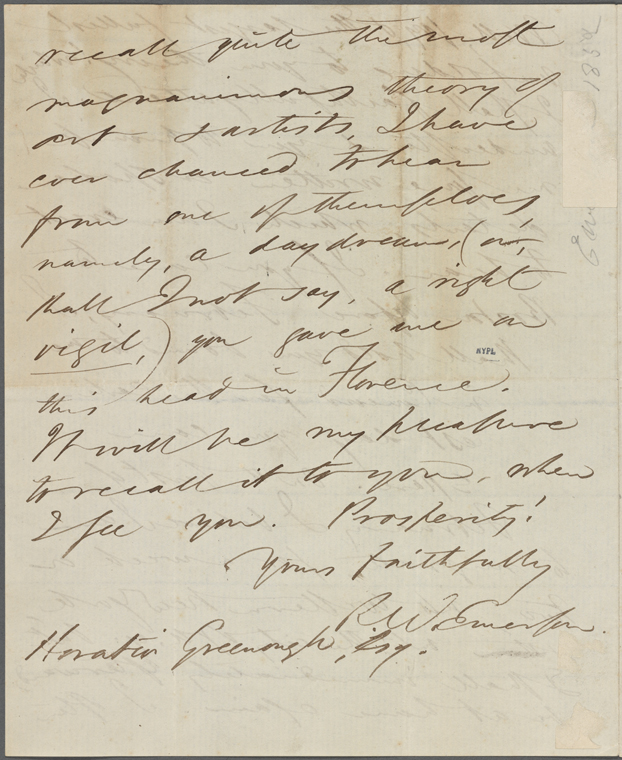 recall quite the most
magnanimous theory of
art & artists, I have
ever chanced to hear
from one of themselves,
namely, a day dream, (or,
shall I not say, a right
vigil,) you gave me on
this head in Florence.
It will be my pleasure
to recall it to you, when
I see you. Prosperity!
Yours faithfully
R. W. Emerson.
Horatio Greenough, Esq.
NYPL